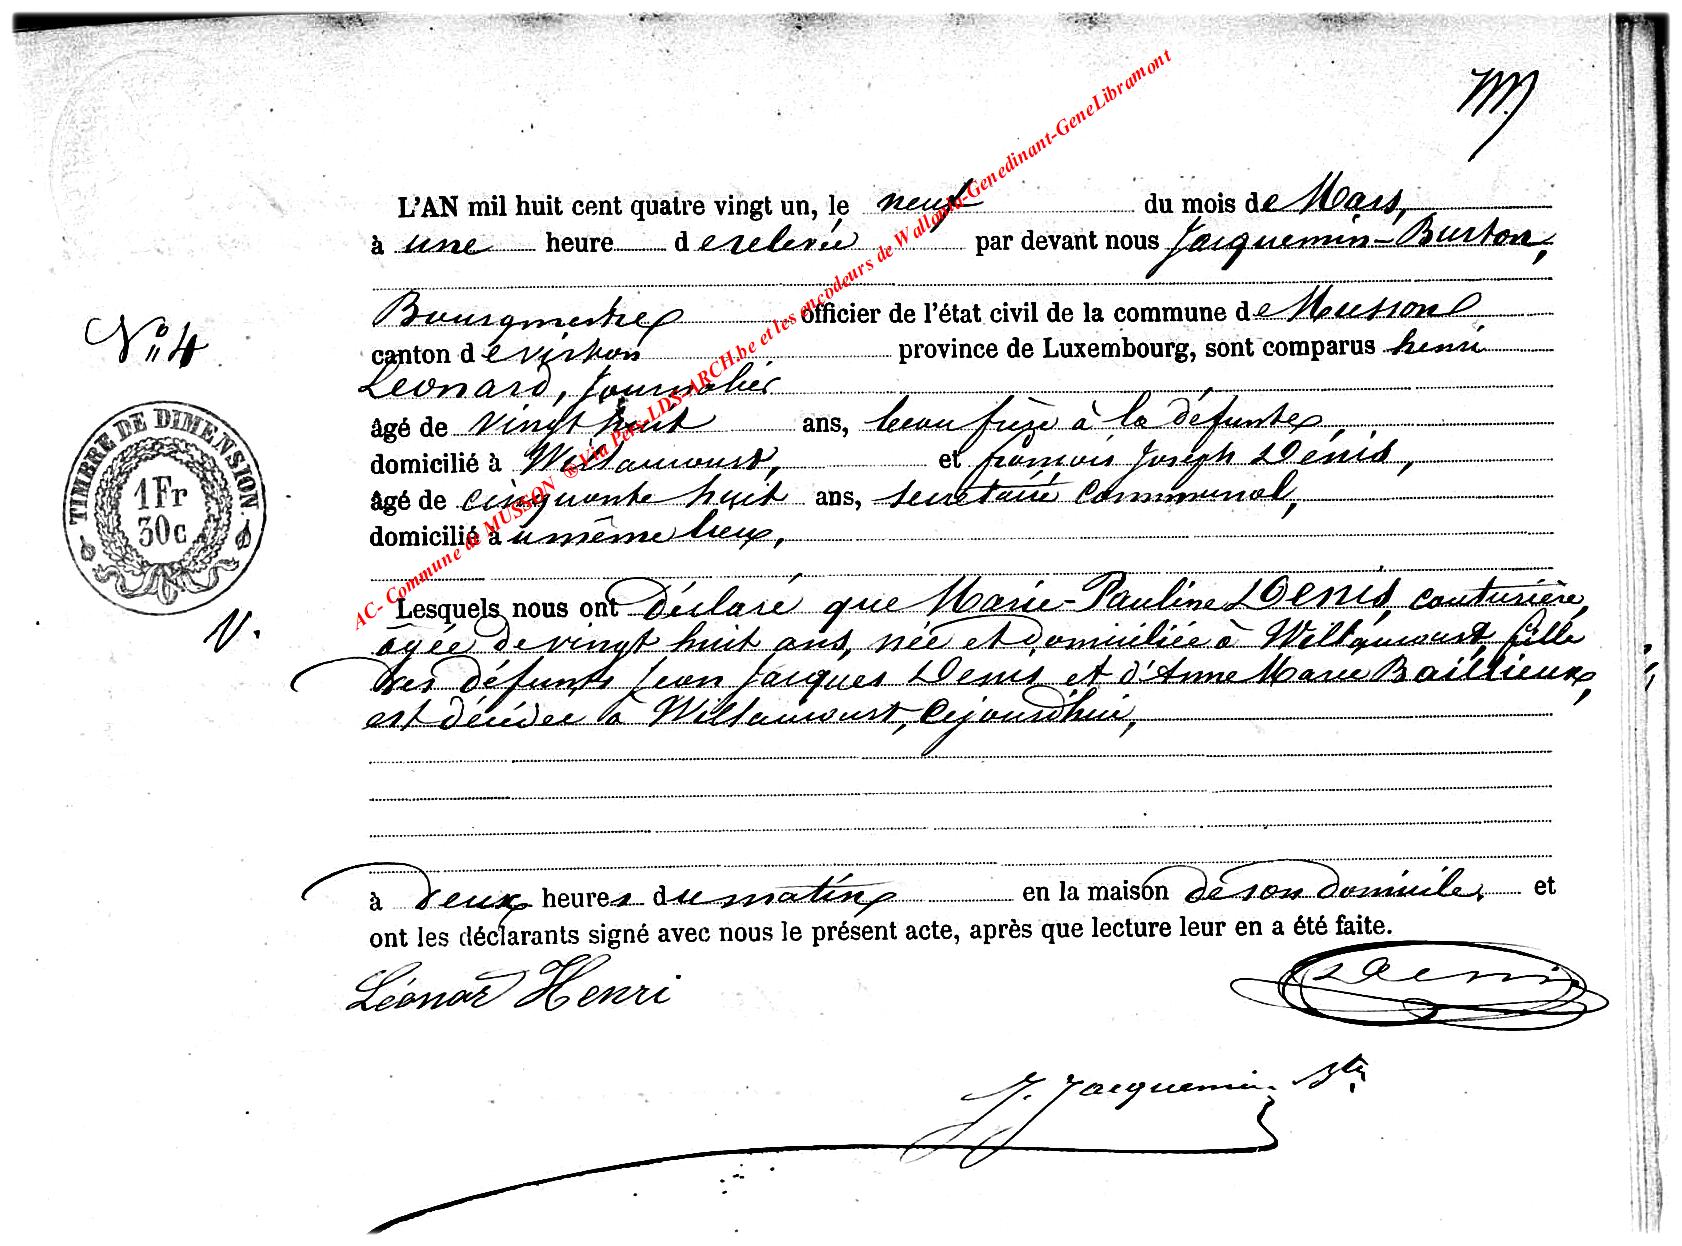 L'AN mil huit cent quatre vingt un, le neuf du mois de Mars,
à une heure de relevée par devant nous Jacquemin-Burton,
Bourgmestre officier de l'état civil de la commune de Musson
N° 4
canton de virton province de Luxembourg, sont comparus henri
Léonard, Journalier
âgé de vingt huit ans, beau frère à la défunte,
domicilié à Willancourt, et françois Joseph Dénis,
âgé de cinquante huit ans, secrétaire communal,
domicilié au même lieu,
TIMBRE DE DIMENSION
1 Fr
30 c
Lesquels nous ont déclaré que Marie-Pauline Denis, couturière,
âgée de vingt huit ans, née et domiciliée à Willancourt, fille
des défunts Jean Jacques Denis et d'Anne Marie Baillieux,
est décédée à Willancourt, cejourd'hui,
à deux heures du matin en la maison de son domicile, et
ont les déclarants signé avec nous le présent acte, après que lecture leur en a été faite.
Léonar Henri
Denis
J. Jacquemin Btn
AC- Commune de MUSSON ®Via Pers-LDS-ARCH.be et les encodeurs de Wallonia-Genedinant-GeneLibramont